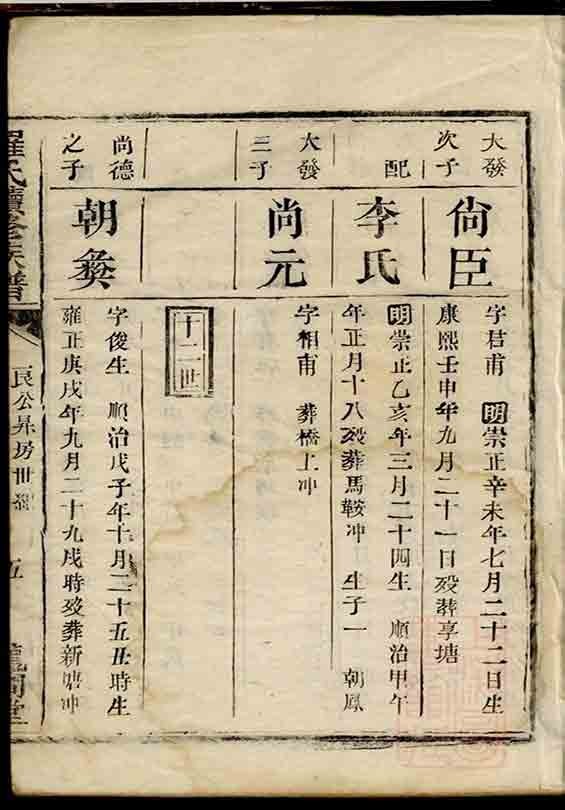 大發
次子
尙臣
字君甫 明崇正辛未年七月二十二日生
康熙壬申年九月二十一日歿葬享塘
配
李氏
明崇正乙亥年三月二十四生 順治甲午
年正月十八歿葬馬鞍冲 生子一 朝鳳
大發
三子
尙元
字相甫 葬橋上冲
十二世
尚德
之子
朝彝
字俊生 順治戊子年十月二十五丑時生
雍正庚戌年九月二十九戌時歿葬新塘冲
羅氏續修族譜
良公昇房世
五